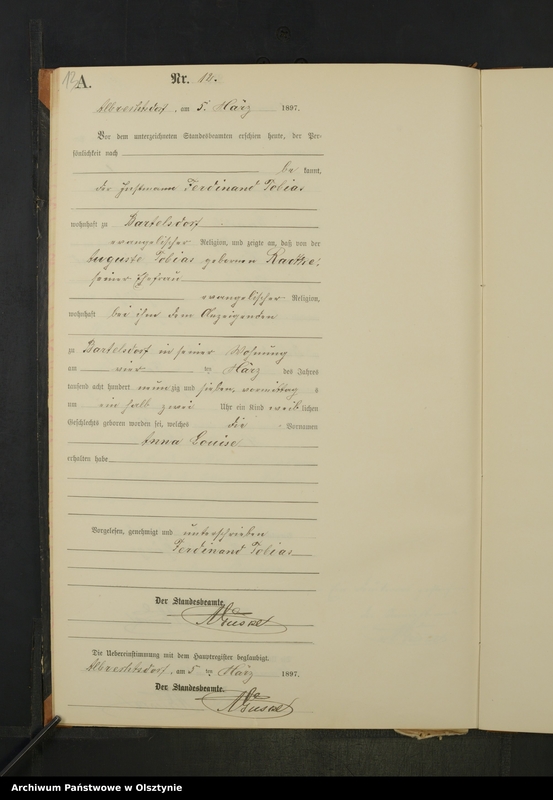 12
A.
Nr. 12.
Albrechtsdorf, am 5. März 1897.
Vor dem unterzeichneten Standesbeamten erschien heute, der Per-
sönlichkeit nach
be kannt,
der Instmann Ferdinand Tobias
wohnhaft zu Bartelsdorf
evangelischer Religion, und zeigte an, daß von der
Auguste Tobias geborenen
seiner Ehefrau
evangelischer Religion,
wohnhaft bei ihm dem Anzeigenden
zu Bartelsdorf in seiner Wohnung
am vier ten März des Jahres
tausend acht hundert neun zig und sieben, vormittag s
um ein halb zwei Uhr ein Kind weib lichen
Geschlechts geboren worden sei, welches die Vornamen
Anna Louise
erhalten habe
Vorgelesen, genehmigt und unterschrieben
Ferdinand Tobias
Der Standesbeamte.
Die Uebereinstimmung mit dem Hauptregister beglaubigt.
Albrechtsdorf, am 5 ten März 1897.
Der Standesbeamte.
Archiwum Państwowe w Olsztynie